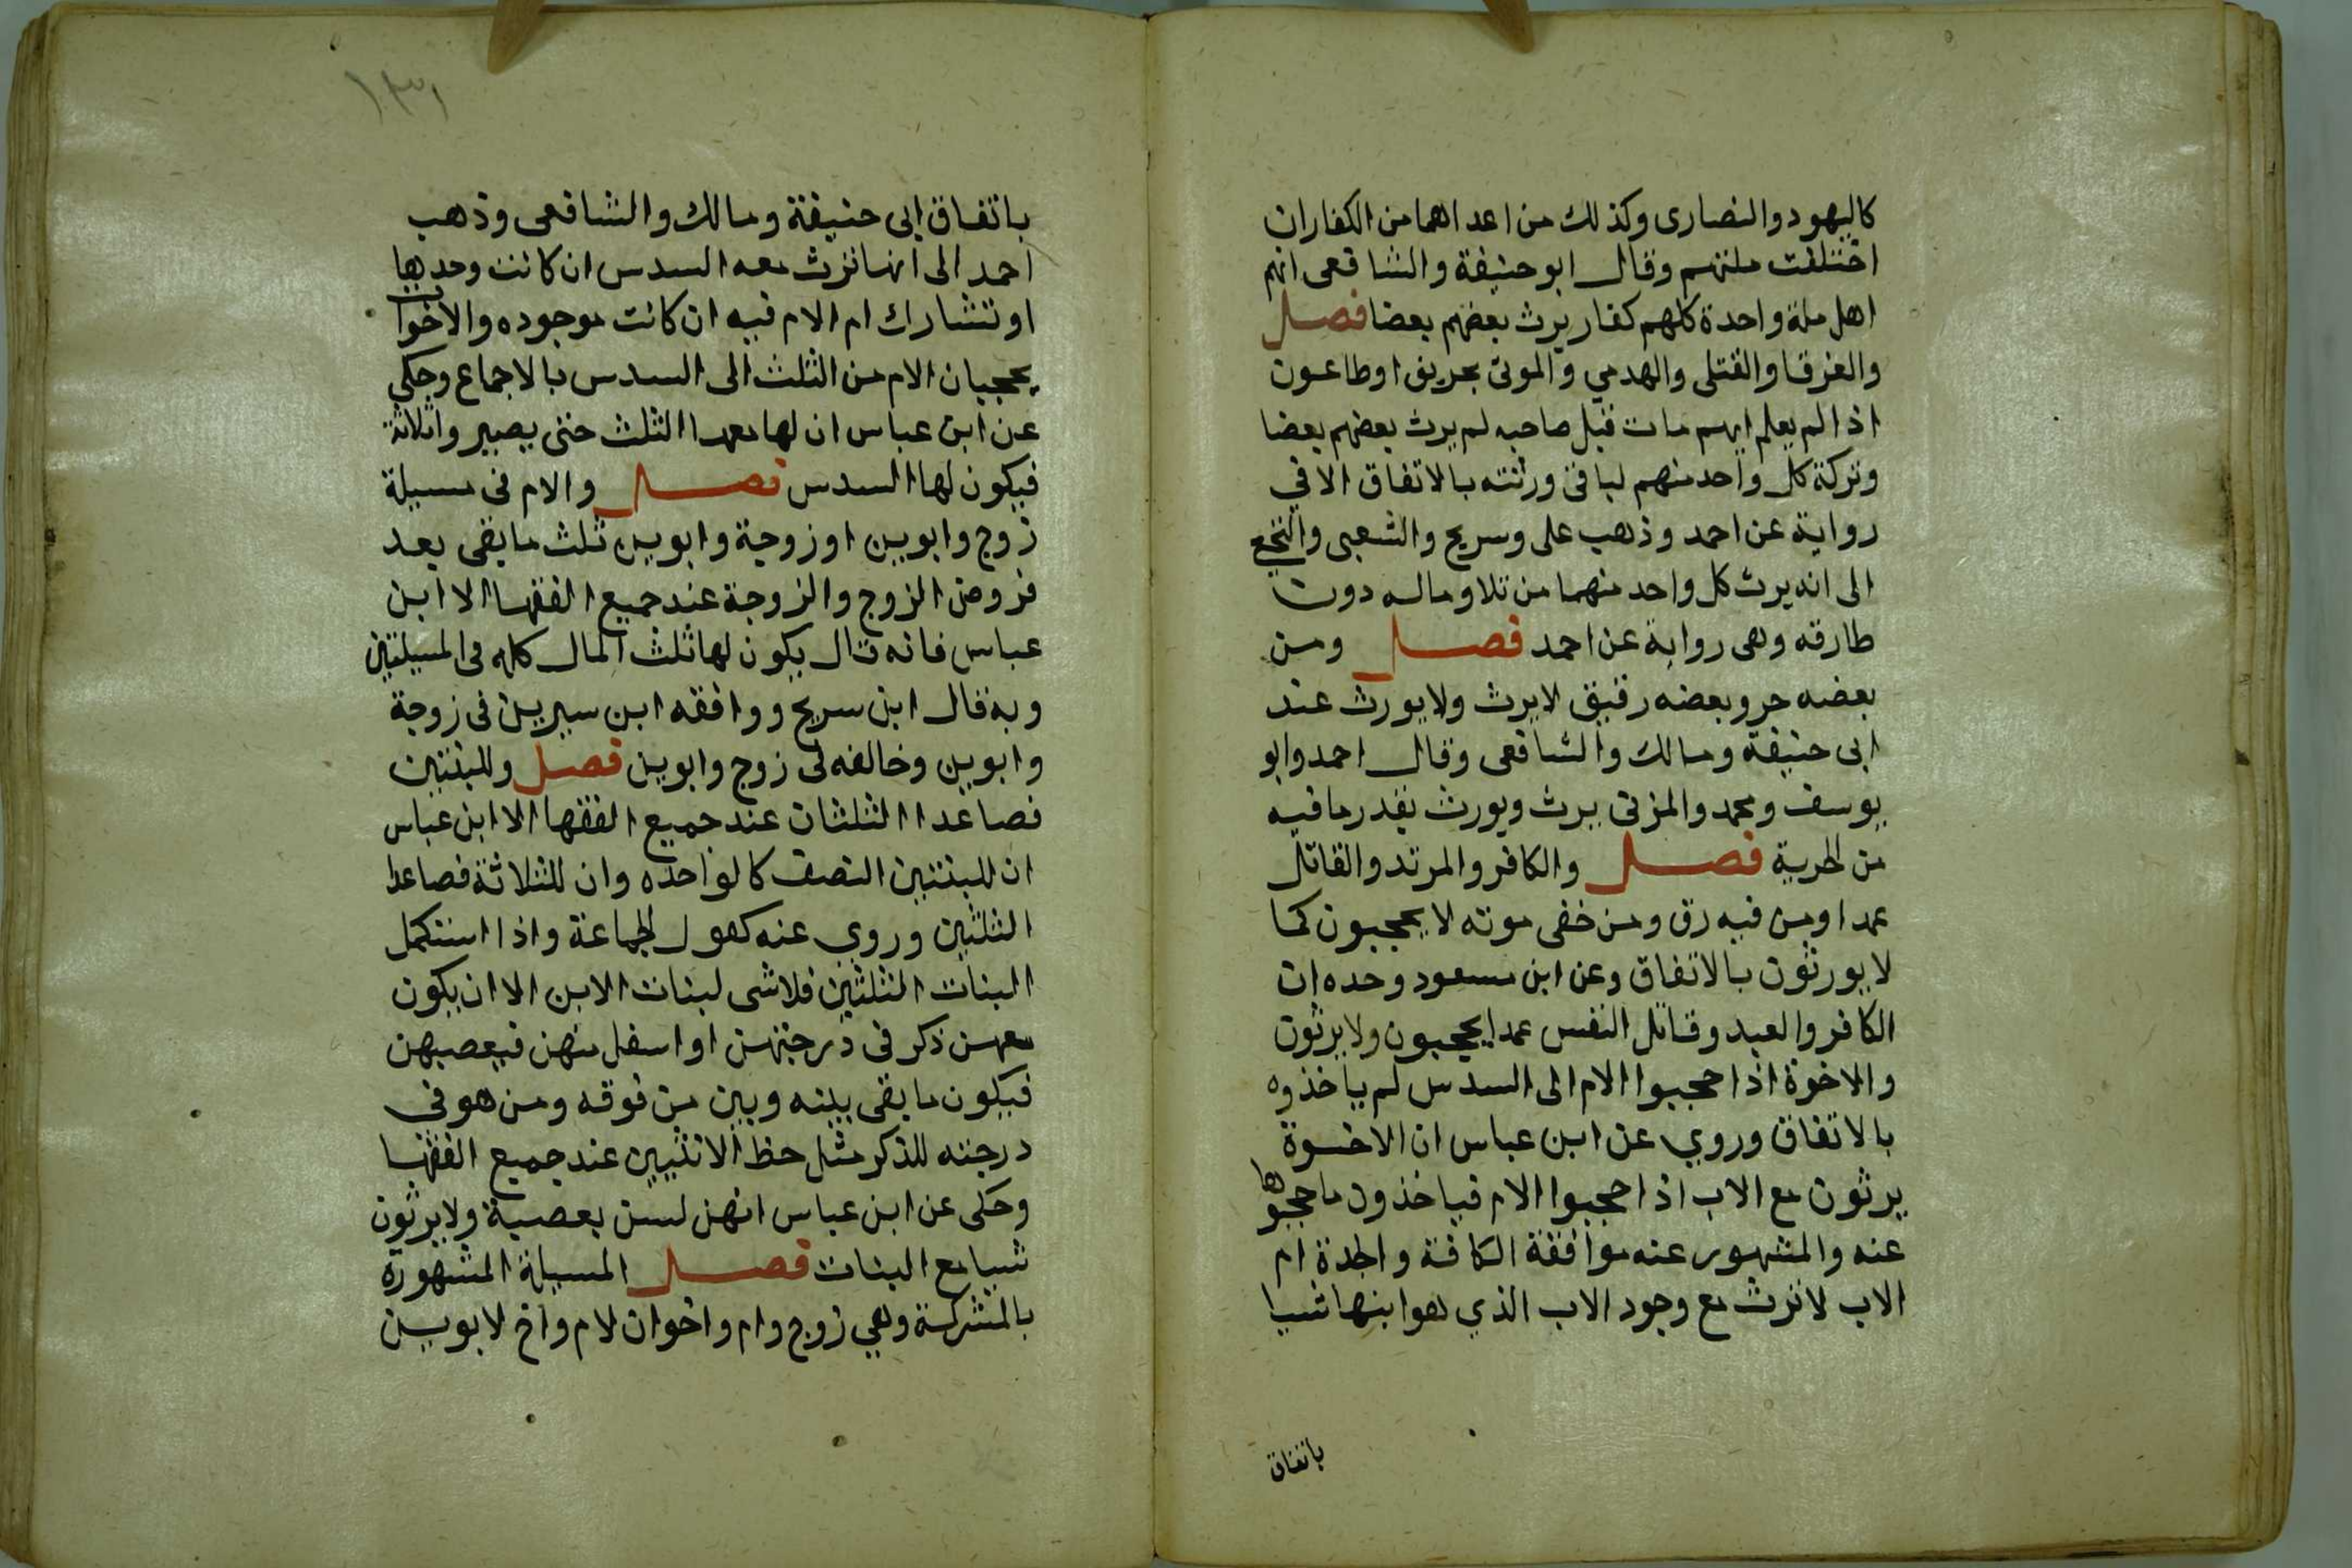 كاليهود والنصارى وكذلك من اعداهما من الكفاران
اختلفت ملتهم وقال ابو حنيفة والشافعى انهم
اهل ملة واحدة كلهم كفار يرث بعضهم بعضا فصل
والغرقا والقتلى والهدمي والموتى بحريق او طاعون
اذا لم يعلم ايهم مات قبل صاحبه لم يرث بعضهم بعضا
وتركة كل واحد منهم لباقى ورثته بالاتفاق الا في
رواية عن احمد وذهب على وسريح والشعبى والنخعى
الى انه يرث كل واحد منهما من تلاد ماله دون
طارقه وهى رواية عن احمد فصل ومن
بعضه حر وبعضه رقيق لا يرث ولا يورث عند
ابى حنيفة ومالك والشافعى وقال احمد وابو
يوسف ومحمد والمزنى يرث ويورث بقدر ما فيه
من الحرية فصل والكافر والمرتد والقاتل
عمدا ومن فيه رق ومن خفى موته لا يحجبون كما
لا يورثون بالاتفاق وعن ابن مسعود وحده ان
الكافر والعبد وقاتل النفس عمدا يحجبون ولا يرثون
والاخوة اذا حجبوا الام الى السدس لم ياخذوه
بالاتفاق وروي عن ابن عباس ان الاخوة
يرثون مع الاب اذا حجبوا الام فياخذون ما حجبوها
عنه والمشهور عنه موافقة الكافة والجدة ام
الاب لا ترث مع وجود الاب الذي هو ابنها شيا
باتفاق
١٣١
باتفاق ابى حنيفة ومالك والشافعى وذهب
احمد الى انها ترث معه السدس ان كانت وحدها
او تشارك ام الام فيه ان كانت موجوده والاخوان
يحجبان الام من الثلث الى السدس بالاجماع وحكى
عن ابن عباس ان لها معهما الثلث حتى يصيروا ثلاثة
فيكون لها السدس فصل والام فى مسيلة
زوج وابوين او زوجة وابوين ثلث ما بقى بعد
فروض الزوج والزوجة عند جميع الفقها الا ابن
عباس فانه قال يكون لها ثلث المال كله فى المسيلتين
وبه قال ابن سريح ووافقه ابن سيرين فى زوجة
وابوين وخالفه فى زوج وابوين فصل وللبنتين
فصاعدا الثلثان عند جميع الفقها الا ابن عباس
ان للبنتين النصف كالواحده وان للثلاثة فصاعدا
الثلثين وروي عنه كقول الجماعة واذا استكمل
البنات الثلثين فلا شى لبنات الابن الا ان يكون
معهن ذكر فى درجتهن او اسفل منهن فيعصبهن
فيكون ما بقى بينه وبين من فوقه ومن هو فى
درجته للذكر مثل حظ الانثيين عند جميع الفقها
وحكى عن ابن عباس انهن لسن بعصبة ولا يرثون
شيا مع البنات فصل المسيلة المشهورة
بالمشركة وهي زوج وام واخوان لام واخ لابوين